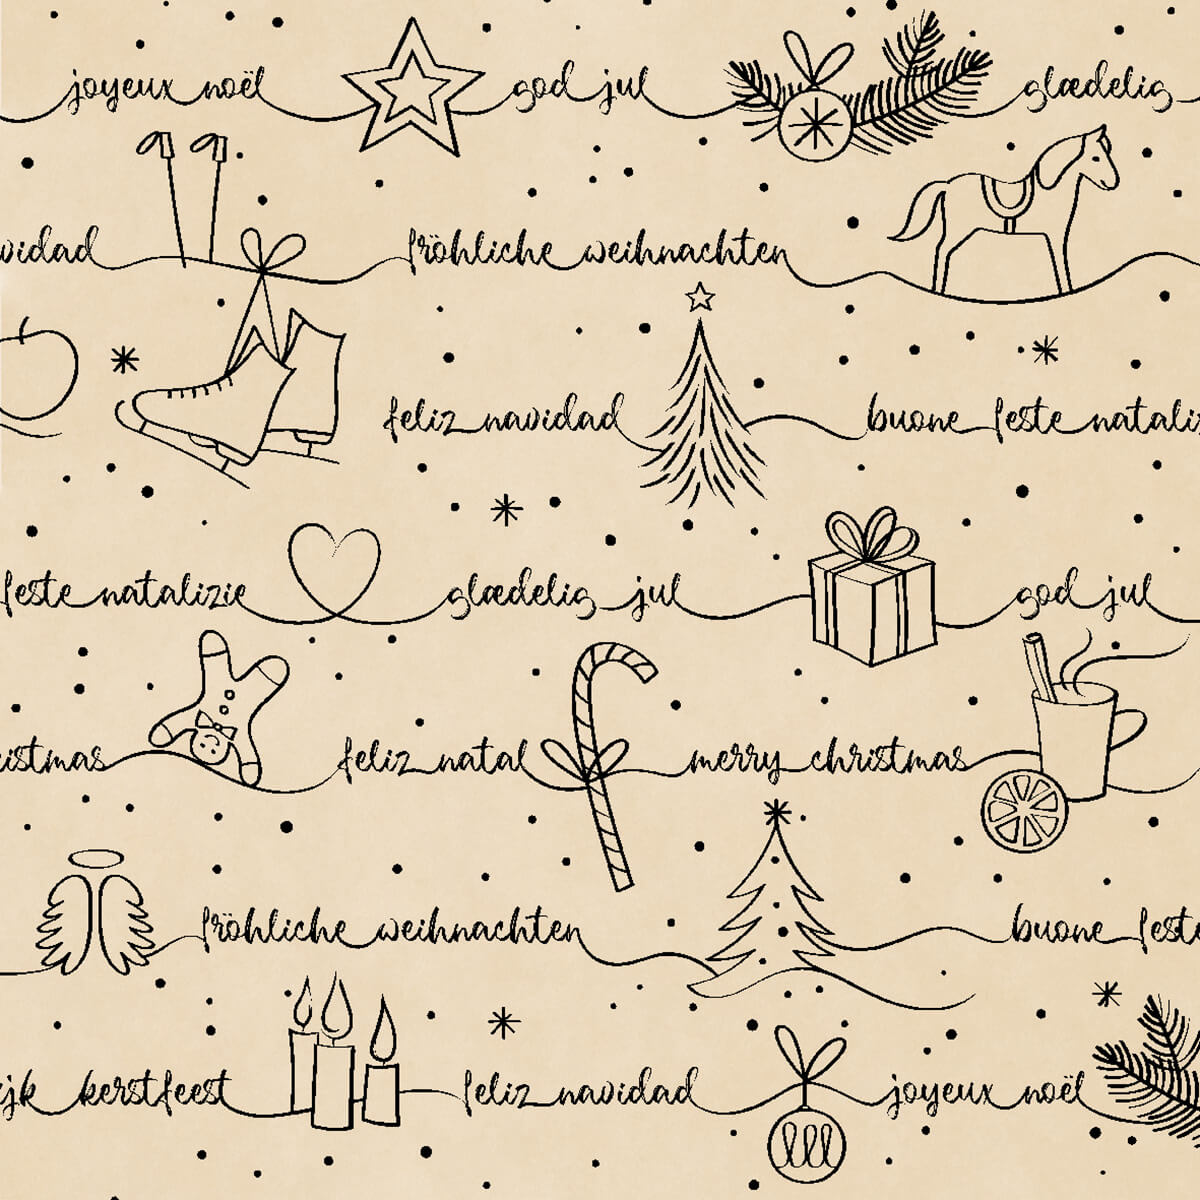 joyeux noël god jul glædelig
vidad fröhliche weihnachten
feliz navidad buone feste natalizi
feste natalizie glædelig jul god jul
istmas feliz natal merry christmas
fröhliche weihnachten buone feste
ijk kerstfeest feliz navidad joyeux noël